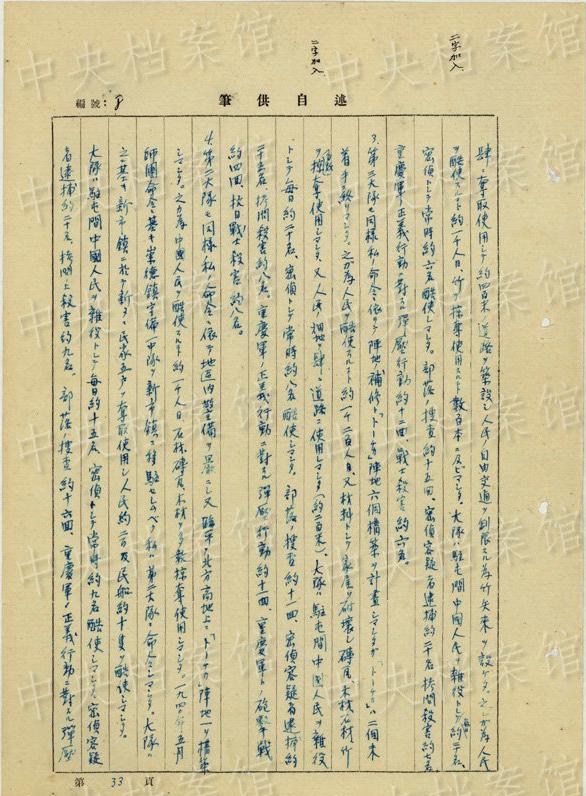 二字加入
二字加入
編號：8
筆供自述
肆ニ奪取使用シテ約四百米ノ道路ヲ築設シ人民ノ自由交通ヲ制限スル為竹矢来ヲ設ケタ。之ガ為人民
ヲ酷使スルコト約一千人日、竹ヲ採奪使用スルコト数百本ニ及ビマシタ。大隊ハ駐屯間中國人民ヲ雜役トシテ毎日約二十名、
密偵トシテ常時約六名酷使シマシタ。部落ノ捜査約十五回、密偵容疑者逮捕約二十名拷問殺害約七名。
重慶軍ノ正義行動ニ對スル弾壓行動約十二回、戰士殺害約六名。
3. 第三大隊モ同様私ノ命令ニ依リテ陣地補修ト「トーチカ」陣地六個構築ヲ計畫シマシタガ「トーチカ」ハ二個未
着手ニ終リマシタ。之ガ為人民ヲ酷使スルコト約一千二百人日、又材料トシテ家屋ヲ破壊シ磚瓦、木材、石材、竹
ヲ掠奪使用シマシタ。又人民ノ畑地ヲ肆ニ道路ニ使用シマシタ（約二百米）。大隊ハ駐屯間中國人民ヲ雜役
トシテ毎日約二十名、密偵トシテ常時約八名酷使シマシタ。部落ノ捜査約十一回、密偵容疑者逮捕約
二十五名、拷問殺害約八名。重慶軍ノ正義行動ニ對スル弾壓行動約十一回、重慶軍トノ砲撃戰
約四回、抗日戰士殺害約八名。
4. 第二大隊モ同様私ノ命令ニ依リテ地區内警備ヲ
シマシタ。之ガ為中國人民ヲ酷使スルコト約一千人日石材、磚瓦、木材ヲ多數採奪使用シマシタ。一九四
年五月
師團命令ニ基キ崇德鎮守備ノ中隊ヲ新市鎮ニ移駐セシムベク私ハ第二大隊ニ命令シマシタ。大隊ハ
之ニ基キ新市鎮ニ於テ新タニ民家五戸ヲ奪取使用シ人民約二百及民船約十隻ヲ酷使シマシタ。
大隊ハ駐屯間中國人民ヲ雜役トシテ毎日約十五名、密偵トシテ常時約九名酷使シマシタ。密偵容疑
者逮捕約二十名拷問ノ上殺害約九名。部落ノ捜査約十六回、重慶軍ノ正義行動ニ對スル弾壓
第 33 頁